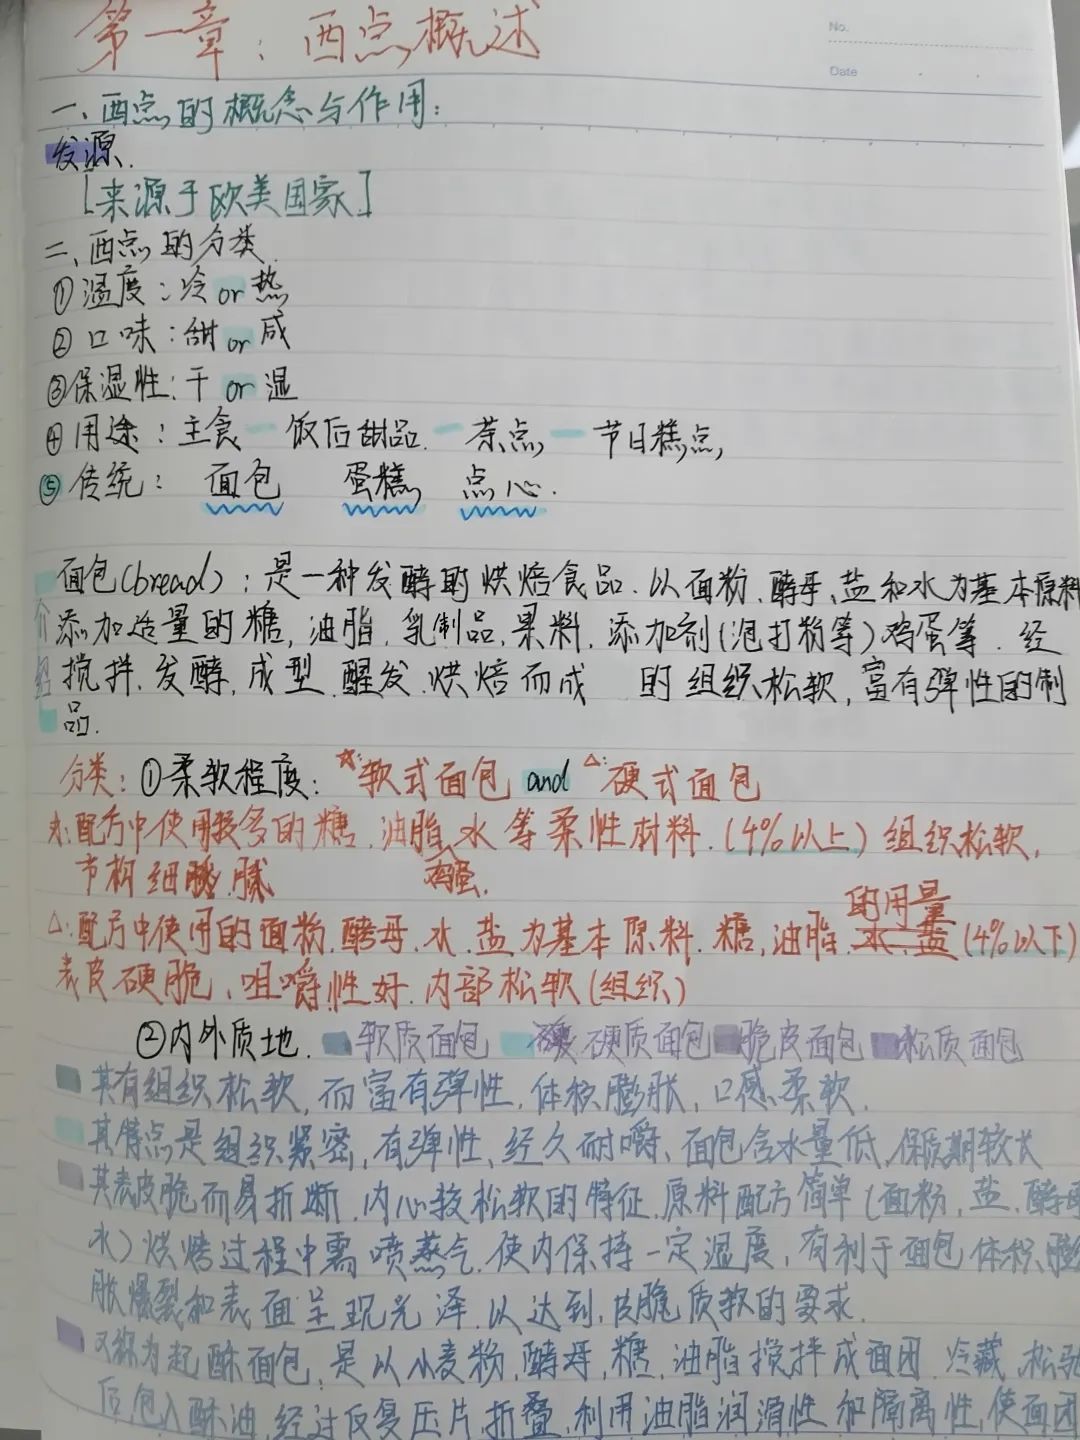 第一章：西点概述
No.
Date
一、西点的概念与作用：
发源.
[来源于欧美国家]
二、西点的分类
①温度：冷or热
②口味：甜or咸
③保湿性：干or湿
④用途：主食—饭后甜品.—茶点—节日糕点,
⑤传统：面包 蛋糕 点心.
面包(bread)：是一种发酵的烘焙食品.以面粉.酵母、盐和水为基本原料
介 添加适量的糖,油脂.乳制品,果料.添加剂(泡打粉等)鸡蛋等.经
绍 搅拌.发酵,成型.醒发.烘焙而成 的组织松软,富有弹性的制
品.
分类：①柔软程度：☆:软式面包 and △:硬式面包
☆:配方中使用较多的糖.油脂.水等柔性材料.(4%以上)组织松软,
鸡蛋.
节构细腻
的用量
△:配方中使用的面粉.酵母.水.盐为基本原料.糖,油脂.水.盐(4%以下)
表皮硬脆、咀嚼性好.内部松软(组织)
②内外质地. 软质面包 硬质面包 脆皮面包 松质面包
其有组织松软,而富有弹性,体积膨胀,口感柔软.
其特点是组织紧密,有弹性、经久耐嚼、面包含水量低,保质期较长
其表皮脆而易折断.内心较松软的特征.原料配方简单(面粉,盐.酵母
水)烘烤过程中需喷蒸气.使内保持一定湿度,有利于面包体积膨
胀爆裂和表面呈现光泽.以达到,皮脆质软的要求.
又称为起酥面包,是以小麦粉,酵母,糖,油脂搅拌成面团.冷藏,松弛
后,包入酥油,经过反复压片.折叠,利用油脂润滑性和隔离性,使面团